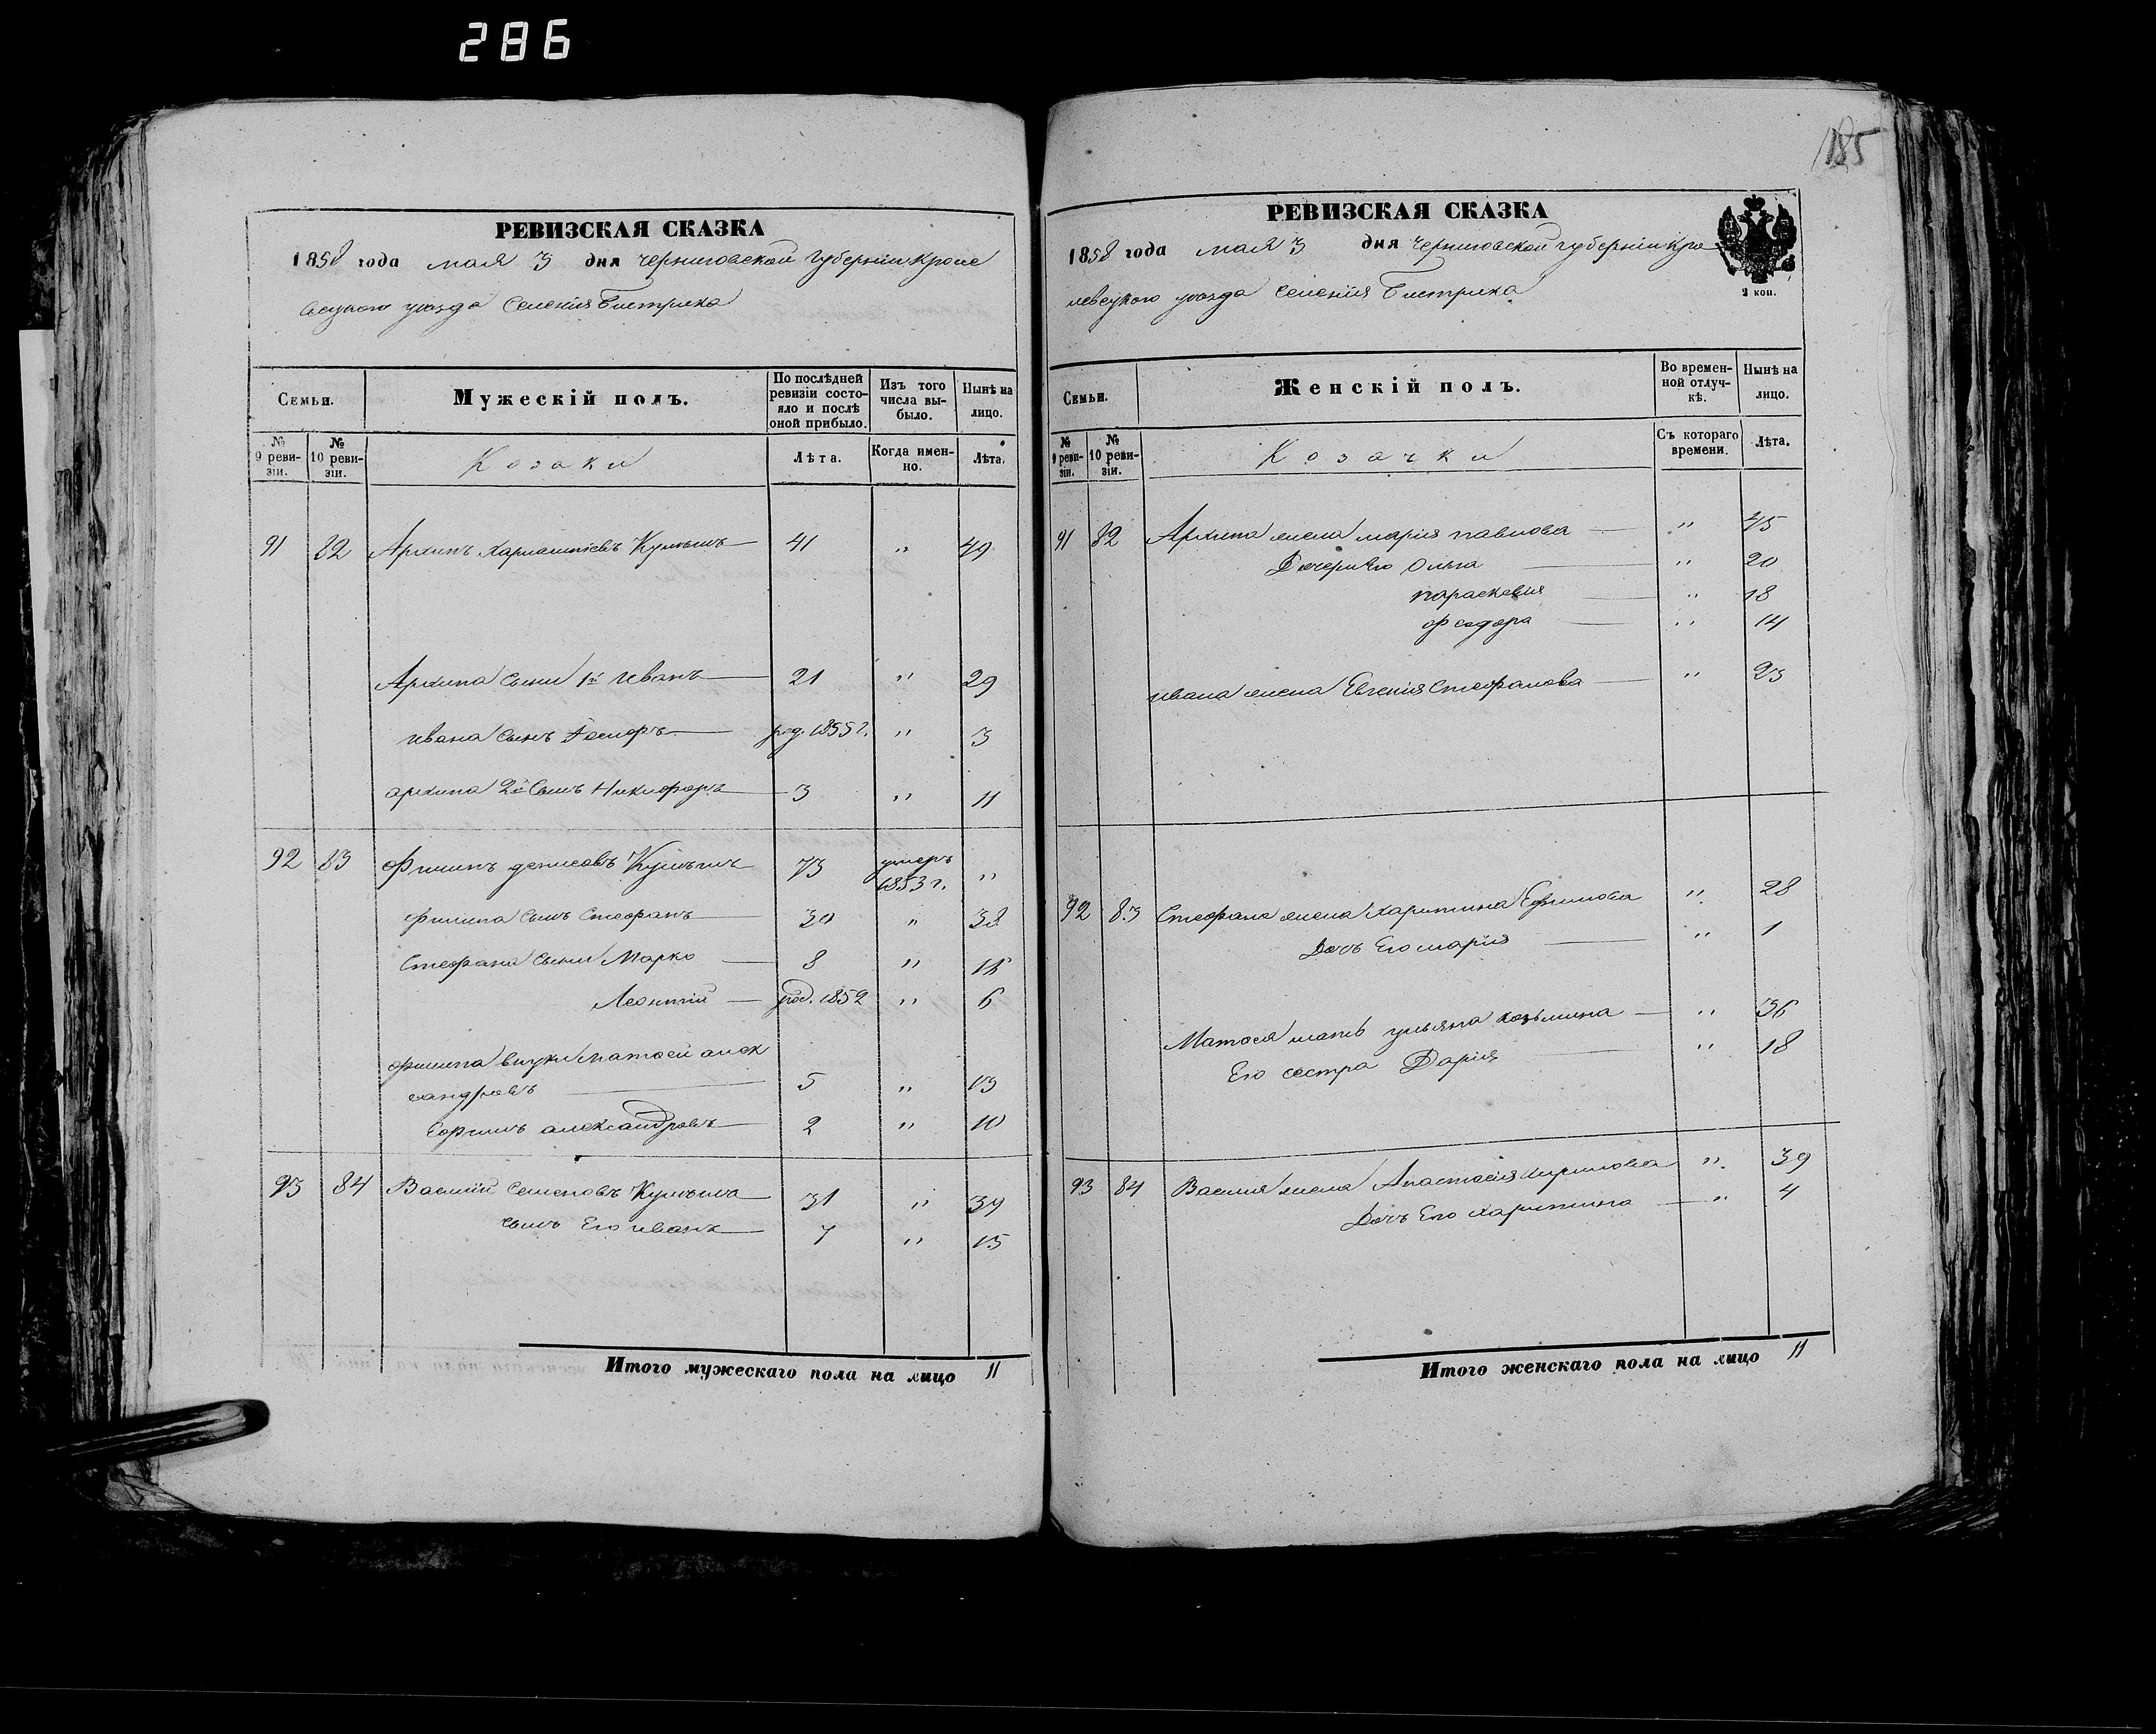 286
185
РЕВИЗСКАЯ СКАЗКА
1858 года мая 3 дня Черниговской Губерніи Кроле
вецкаго уезда Селенія Бистрика
Семьи.
Мужескій полъ.
По послѣдней ревизіи состояло и послѣ оной прибыло.
Изъ того числа выбыло.
Нынѣ на лицо.
№ 9 ревизіи.
№ 10 ревизіи.
Козаки
Лѣта.
Когда именно.
Лѣта.
91 82 Архипъ Харлампіевъ 41 " 49
Архипа сыни 1й Иванъ 21 " 29
Ивана сынъ род. 1855 г. " 3
Архипа 2й сынъ Никифоръ 3 " 11
92 83 Филипъ Денисовъ 73 умеръ 1853 г. "
Филипа сынъ Стефанъ 30 " 38
Стефана сыни Марко 8 " 16
Леонтій род. 1852 " 6
Филипа внуки Матвей Алек
сандровъ 5 " 13
Ефимъ Александровъ 2 " 10
93 84 Василій Семеновъ 31 " 39
сынъ Его Иванъ 7 " 15
Итого мужескаго пола на лицо 11
РЕВИЗСКАЯ СКАЗКА
1858 года мая 3 дня Черниговской губерніи Кро
левецкого уезда Селенія Бистрика
2 коп.
Семьи.
Женскій полъ.
Во временной отлучкѣ.
Нынѣ на лицо.
№ 9 ревизіи.
№ 10 ревизіи.
Козачки
Съ котораго времени.
Лѣта.
91 82 Архипа жена Марія Павлова " 45
Дочери Его Ольга " 20
Параскевия " 18
Феодора " 14
Ивана жена Евгенія Стефанова " 23
92 83 Стефана жена Харитина Ефимова " 28
Дочъ Его Марія " 1
Матвея мать Ульяна Козьмина " 36
Его сестра Дарія " 18
93 84 Василия жена Анастасія Кирилова " 39
Дочъ Его Харитина " 4
Итого женскаго пола на лицо 11